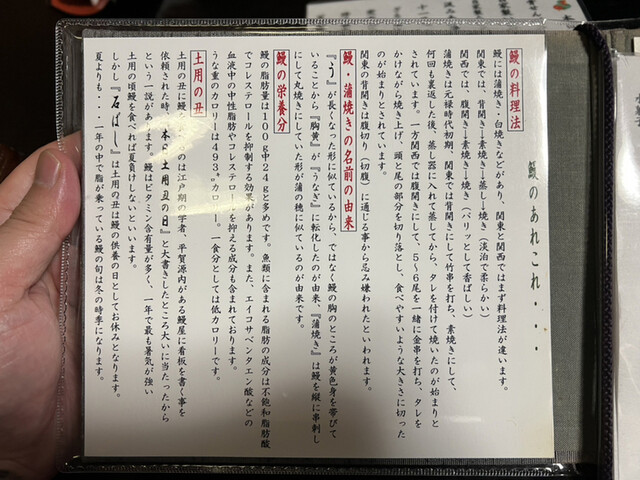 鰻のあれこれ・・・・
鰻の料理法
鰻には蒲焼き・白焼きなどがあり、関東と関西ではまず料理法が違います。
関東では、背開き→素焼き→蒸し→焼き（淡泊で柔らかい）
関西では、腹開き→素焼き→焼き（パリッとして香ばしい）
蒲焼きは元禄時代初期、関東では背開きにして竹串を打ち、素焼きにして、
何回も裏返した後、蒸し器に入れて蒸してから、タレを付けて焼いたのが始まりと
されています。一方関西では腹開きにして、5～6尾を一緒に金串を打ち、タレを
かけながら焼き上げ、頭と尾の部分を切り落とし、食べやすいような大きさに切った
のが始まりとされています。
関東の背開きは腹切り（切腹）に通じる事から忌み嫌われたといわれます。
鰻・蒲焼きの名前の由来
『う』が長くなった形に似ているから、ではなく鰻の胸のところが黄色身を帯びて
いることから『胸黄』が『うなぎ』に転化したのが由来、『蒲焼き』は鰻を縦に串刺し
にして丸焼きにしていた形が蒲の穂に似ているのが由来です。
鰻の栄養分
鰻の脂肪量は100g中24gと多めです。魚類に含まれる脂肪の成分は不飽和脂肪酸
でコレステロールを抑制する効果があります。また、エイコサペンタエン酸などの
血液中の中性脂肪やコレステロールを抑える成分も含まれております。
うな重のカロリーは493㌔カロリー。一食分としては低カロリーです。
土用の丑
土用の丑に鰻を のは江戸期の学者、平賀源内がある鰻屋に看板を書く事を
依頼された時、『本日土用丑の日』と大書きしたところ大いに当たったから
という一説があります。鰻はビタミン含有量が多く、一年で最も暑気が強い
土用の頃鰻を食べれば夏負けしないといいます。
しかし『石ばし』は土用の丑は鰻の供養の日としてお休みとなります。
夏よりも・・・一年の中で脂が乗っている鰻の旬は冬の時季になります。